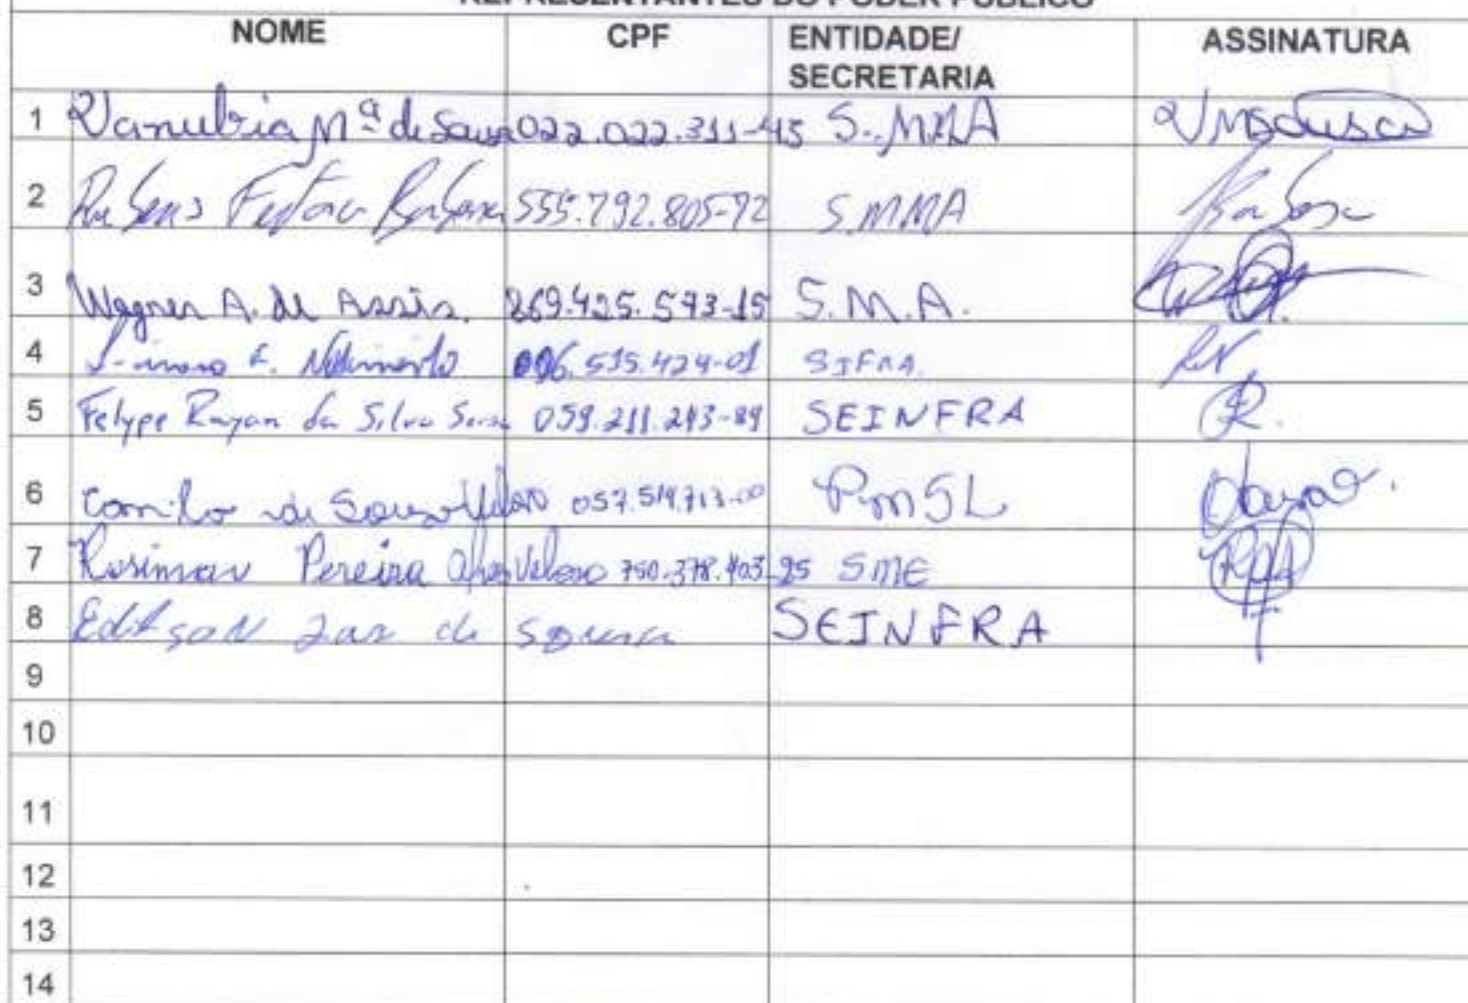 REPRESENTANTES DO PODER PÚBLICO
NOME CPF ENTIDADE/ SECRETARIA ASSINATURA
1 Vanubia Mª de Sousa 022.022.311-45 S.MMA
2 Rubens Barbosa 555.792.805-72 S.MMA
3 Wagner A. de Assis. 869.425.573-15 S.M.A.
4 Nascimento 006.515.424-01
5 Felype Rayan da Silva Sousa 059.211.243-89 SEINFRA
6 Camilo de Sousa Veloso PmSL
7 Rosimar Pereira Veloso 750.378.403-25 SME
8 Edilson de Sousa SEINFRA
9
10
11
12
13
14